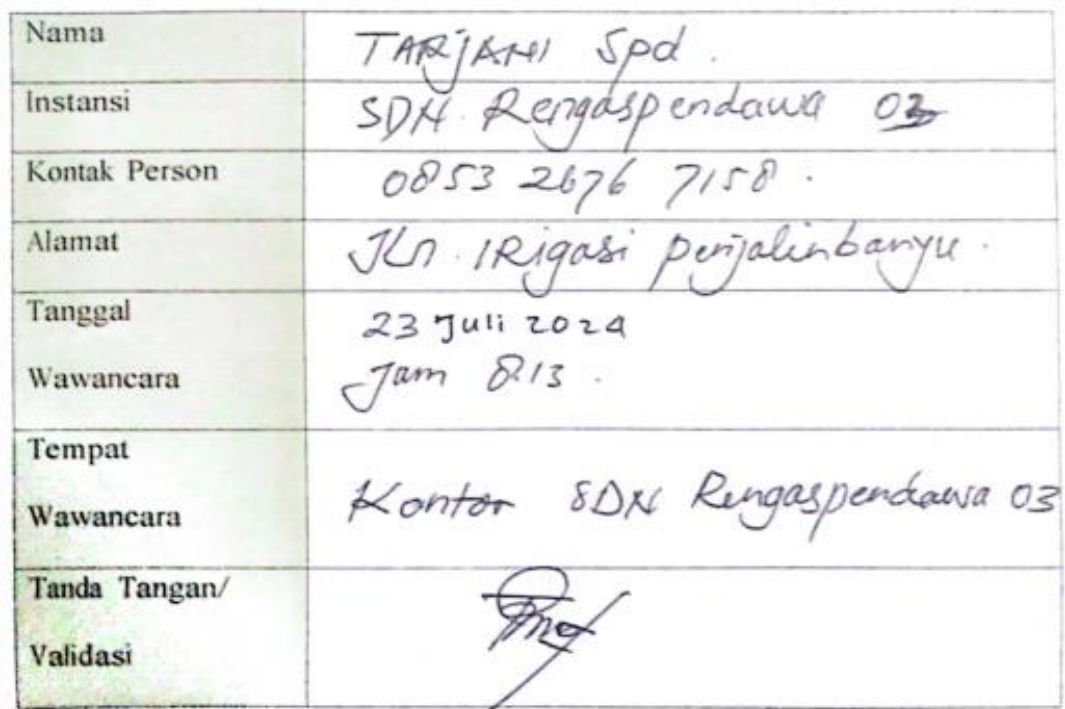 Nama TARJANI Spd.
Instansi SDN. Rengaspendawa 03
Kontak Person 0853 2676 7158.
Alamat Jln. IRigasi penjalinbanyu.
Tanggal 23 Juli 2024
Wawancara Jam 8.13.
Tempat
Wawancara Kantor SDN Rengaspendawa 03
Tanda Tangan/
Validasi